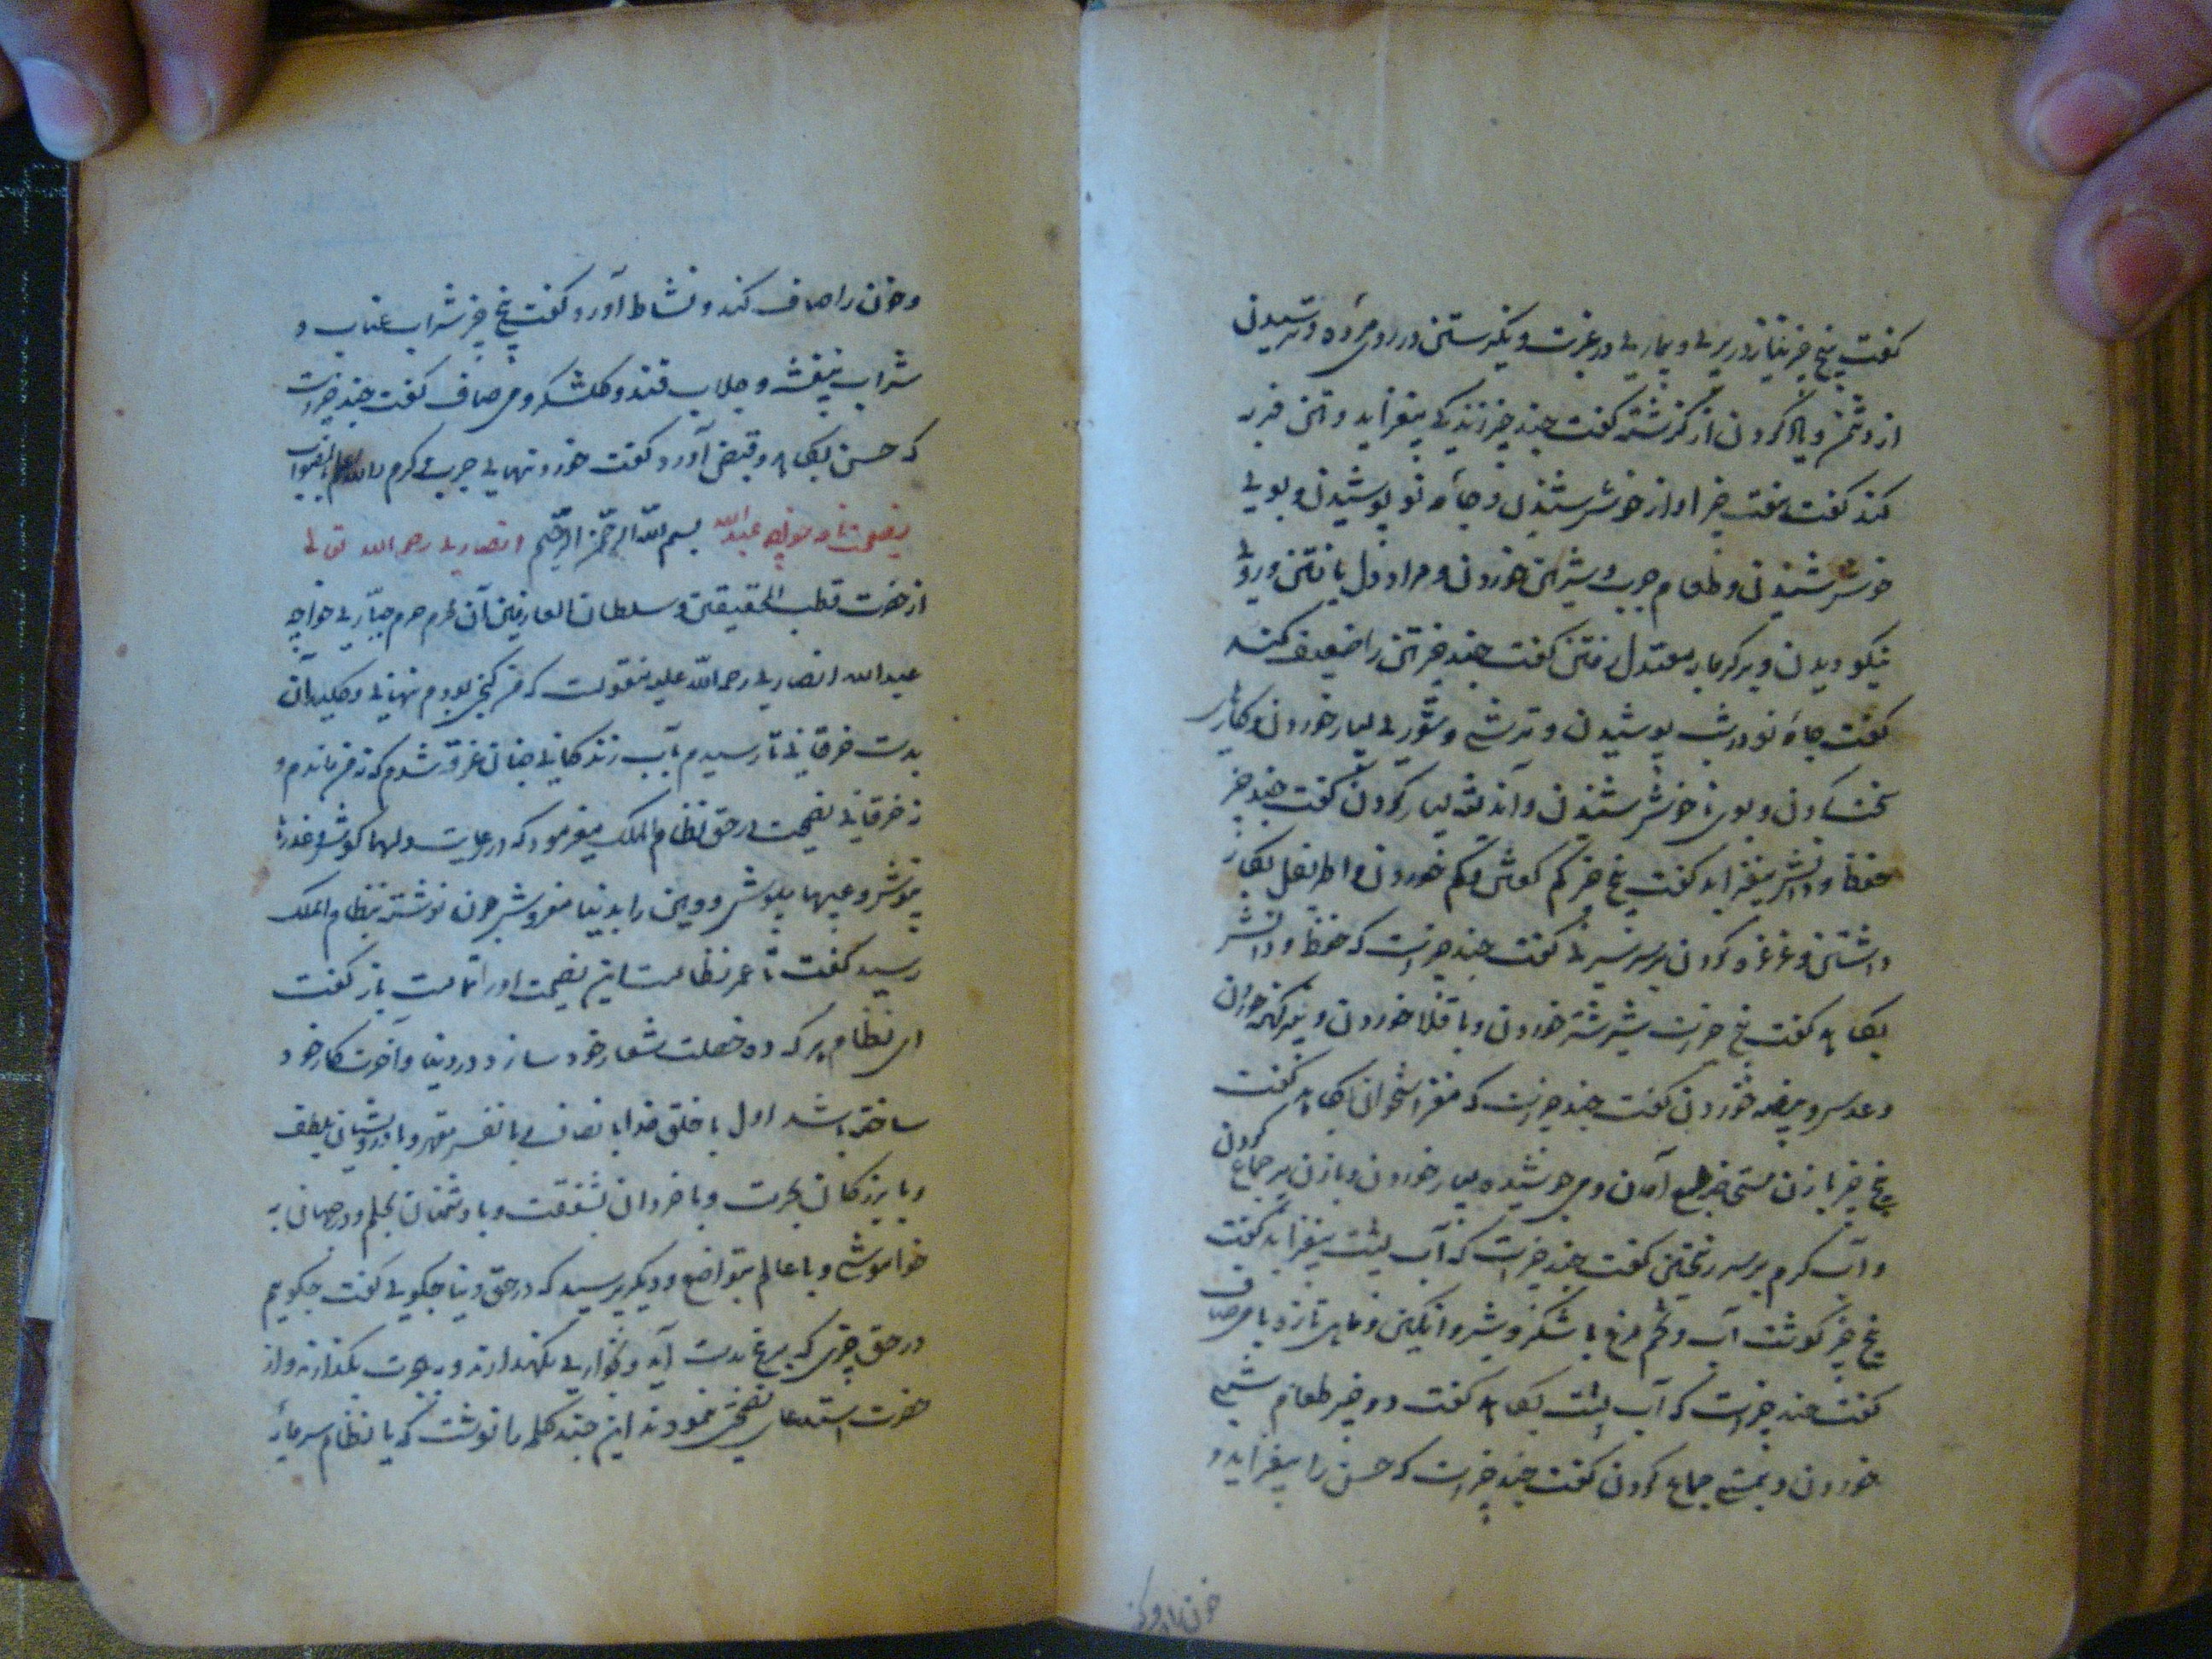 کفت پنج چیز نیاز در پیری و بیماری در غربت و نگرستن در روی مرده و ترسیدن
از دشمن و یاد کردن از گذشته گفت چند چیز زندکی بیفزاید و تن فربه
کند گفت هفت چیز اواز خوش شنیدن و جامه نو پوشیدن و بوی
خوش شنیدن و طعام چرب و شیرین خوردن و مراد دل یافتن و روی
نیکو دیدن و بر کرمابه معتدل رفتن گفت چند چیز تن را ضعیف کند
گفت جامه نو درشت پوشیدن و ترشی و شوری بسیار خوردن و کارهای
سخت کردن و بوی ناخوش شنیدن و اندیشه بسیار کردن گفت چند چیز
حفظ و دانش بیفزاید گفت پنج چیز کم گفتن و کم خوردن و اطریفل بکار
داشتن و غرغره کردن بر سر سیری گفت چند چیزست که حفظ و دانش
بکاهد گفت پنج چیزست شیر شتر خوردن و باقلا خوردن و پنیر کهنه خوردن
و عدس و بیضه خوردن گفت چند چیزست که مغز استخوان بکاهد گفت
پنج چیز با زن مستی بر طمع آمدن و می جوشیده بسیار خوردن و با زن پیر جماع کردن
و آب کرم بر سر ریختن گفت چند چیزست که آب پشت بیفزاید گفت
پنج چیز گوشت آب و تخم مرغ با شکر و شیر و انکبین و ماهی تازه با می صاف
گفت چند چیزست که آب پشت بکاهد گفت دو چیز طعام شبی
خوردن و بمستی جماع کردن گفت چند چیزست که حسن را بیفزاید و
خون را روشن
و خون را صاف کند و نشاط آورد گفت پنج چیز شراب عناب و
شراب بنفشه و جلاب قند و کلشکر و می صاف گفت چند چیزست
که حسن بکاهد و قبض آورد گفت خوردنیهای چرب و کرم والله اعلم بالصواب
نصیحت نامه خواجه عبدالله بسم الله الرحمن الرحیم انصاری رحمه الله تعالی
از حضرت قطب المحققین و سلطان العارفین آن محرم حرم جباری خواجه
عبدالله انصاری رحمه الله علیه منقولست که من کنجی بودم نهانی و کلید آن
بدست خرقانی تا رسیدم بآب زندکانی چنان غرق شدم که نه من ماندم و
نه خرقانی نصیحت در حق نظام الملک میفرمود که در رعایت دلها کوش و عذرها
بنوش و عیبها بپوش و دین را بدنیا مفروش چون نوشته بنظام الملک
رسید گفت تا عمر نظامست این نصیحت او را تمامست باز گفت
ای نظام هر که ده خصلت شعار خود سازد در دنیا و آخرت کار خود
ساخته باشد اول با خلق خدا بانصاف و با نفس بقهر و با درویشان بلطف
و با بزرکان بحرمت و با خردان بشفقت و با دشمنان بحلم و در جهان به
خواموشی و با عالم بتواضع و دیکر پرسید که در حق دنیا چکویی گفت چکویم
در حق چیزی که برنج بدست آید و بخواری نکهدارند و بحسرت بکذارند و از
حضرت استدعای نصیحتی نمودند این چند کلمه را نوشت که یا نظام سرمایه